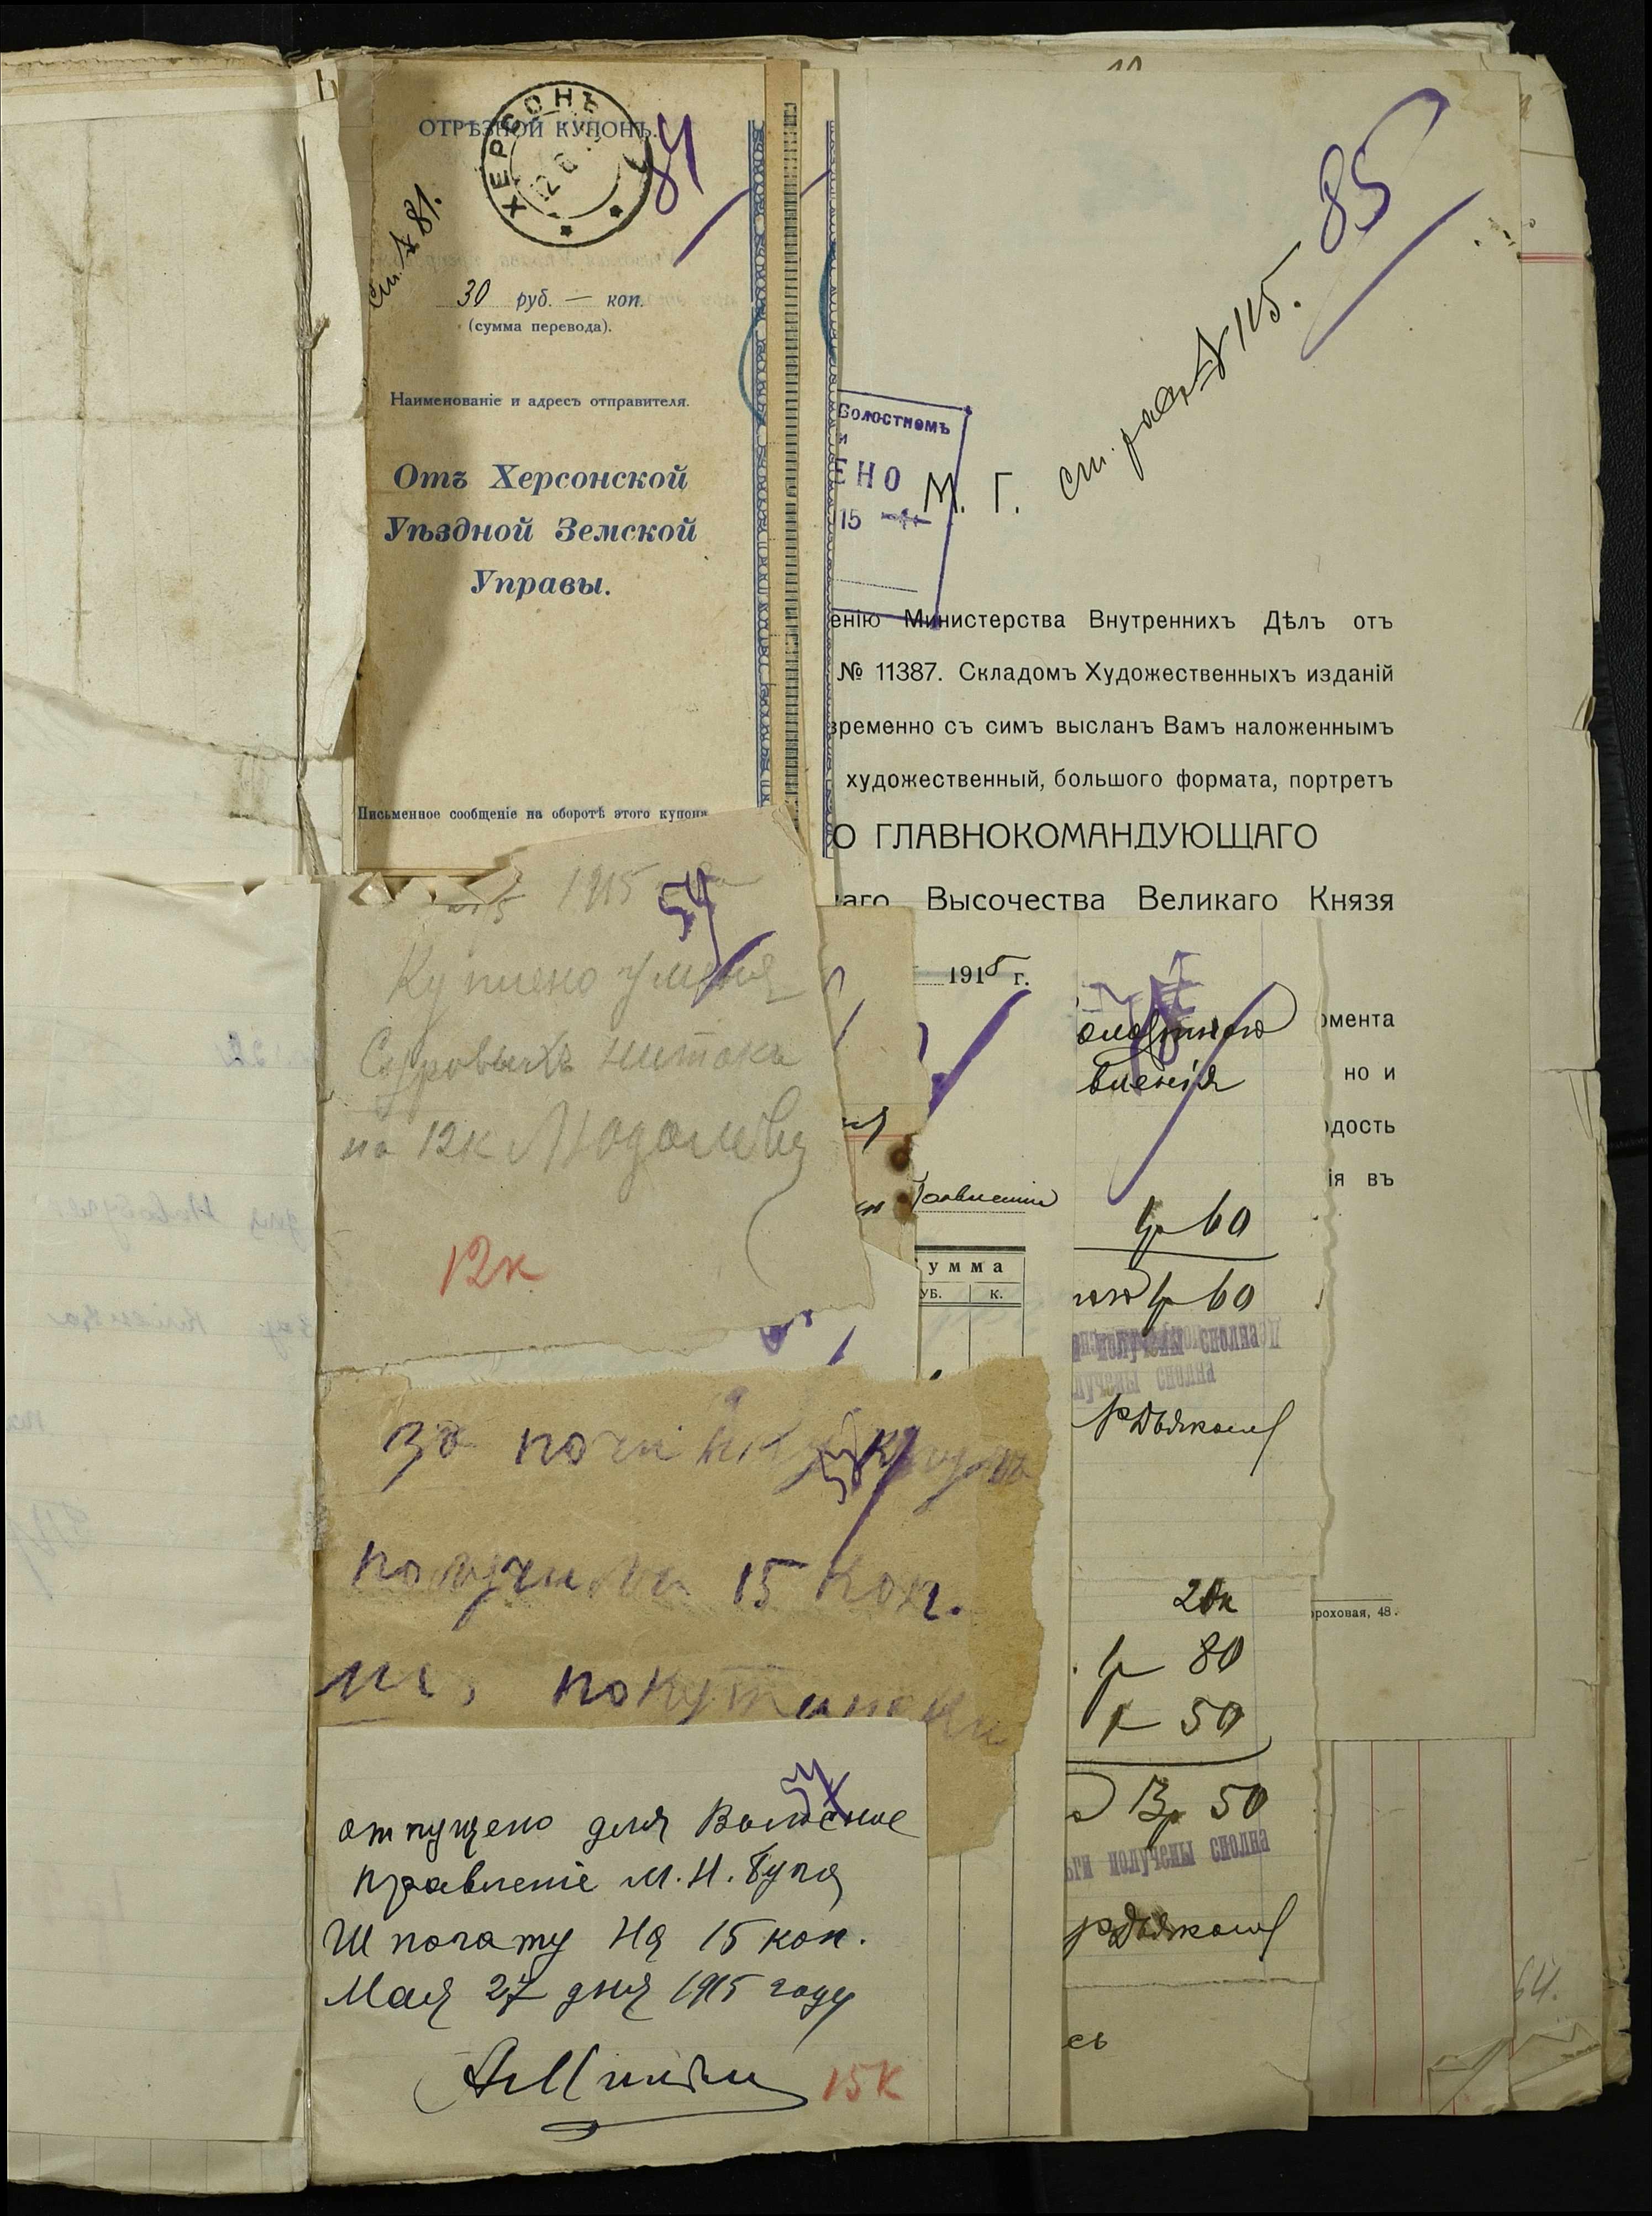 ОТРѢЗНОЙ КУПОНЪ.
ХЕРСОНЪ
12 6
84
См. № 81.
30 руб. — коп.
(сумма перевода).
Наименованіе и адресъ отправителя.
Отъ Херсонской
Уѣздной Земской
Управы.
Письменное сообщеніе на оборотѣ этого купона
85
№ 115.
Волостномъ
и
ЕНО
15
М. Г.
енію Министерства Внутреннихъ Дѣлъ отъ
№ 11387. Складомъ Художественныхъ изданій
временно съ симъ высланъ Вамъ наложеннымъ
художественный, большого формата, портретъ
О ГЛАВНОКОМАНДУЮЩАГО
аго Высочества Великаго Князя
омента
но и
дость
ія въ
ороховая, 48.
1915
54
Куплено у меня
Суровыхъ ниток
на 12к
12к
1915 г.
вленія
Правленіе
умма
УБ. К.
1р 60
1р 60
получены сполна
лучены сполна
20к
1р 80
1 50
3р 50
ьги получены сполна
съ
за почи
получила 15 коп.
отпущено для Волосное
правленіе М. Н. Буга
Шпогату на 15 коп.
Мая 27 дня 1915 году
15к
64.